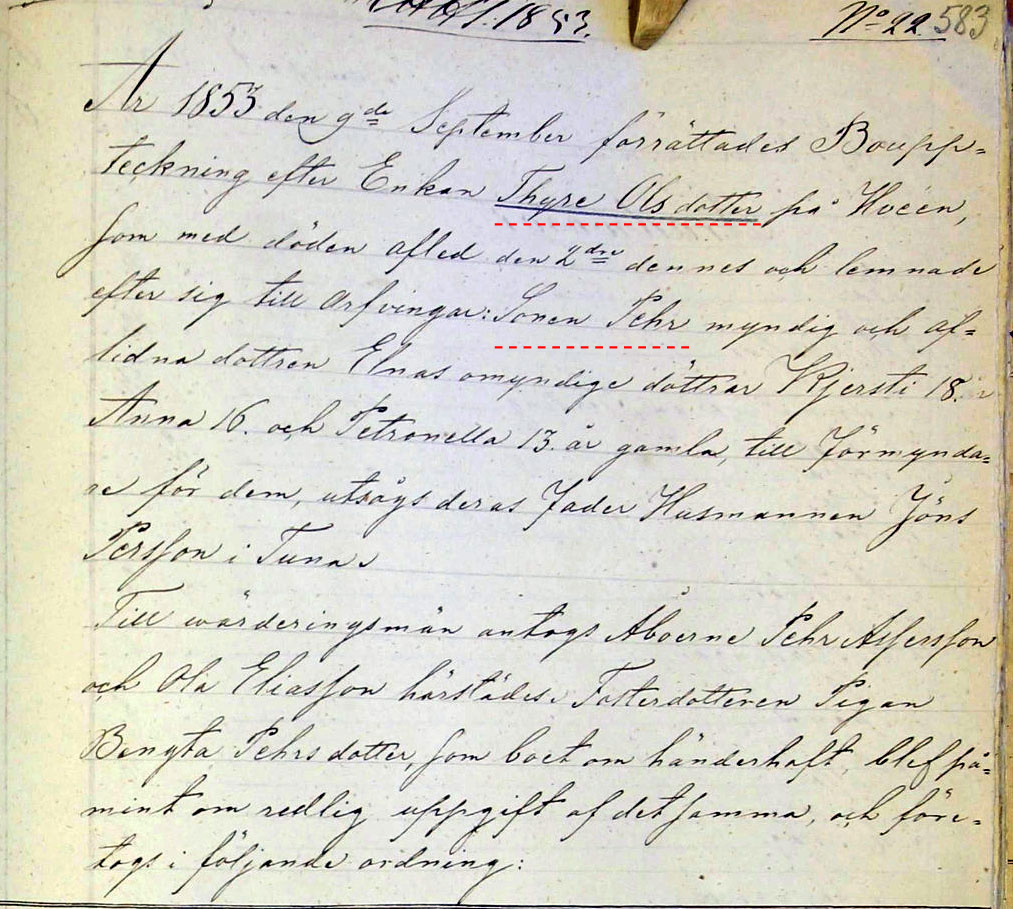 1853.
No 22. 583
År 1853 den 9de September förrättades Boupp=
teckning efter Enkan Thyre Olsdotter på Hvéen,
som med döden afled den 2dre dennes och lemnade
efter sig till Arfvingar: Sonen Pehr myndig och af=
lidna dottren Elnas omyndige döttrar Kjersti 18.
Anna 16. och Petronella 13. år gamla, till Förmynda=
re för dem, utsågs deras Fader Husmannen Jöns
Persson i Tuna.
Till wärderingsmän antogs Åboerne Pehr Assersson
och Ola Eliasson härstädes. Fosterdotteren Pigan
Bengta Pehrsdotter, som boet om händerhaft, blef på=
mint om redlig uppgift af detsamma, och före=
togs i följande ordning: